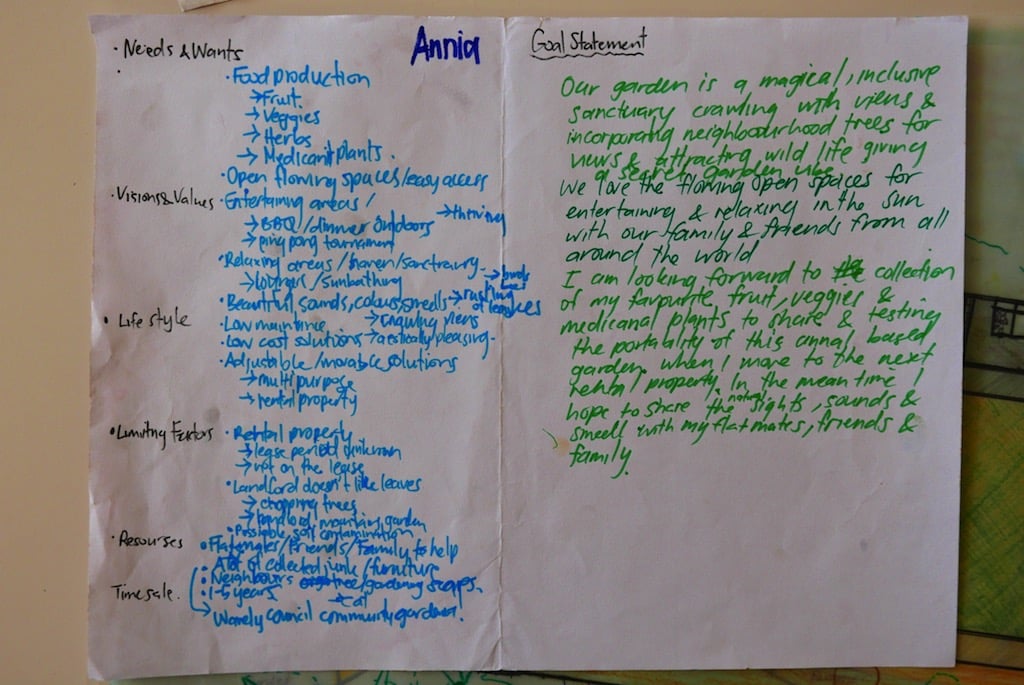 Annia
• Needs & Wants
• Food production
→ Fruit
→ Veggies
→ Herbs
→ Medicant plants.
• Open flowing spaces/easy access
• Visions & Values
• Entertaining areas /
→ thriving
→ BBQ /dinner outdoors
→ ping pong tournament
• Relaxing areas /haven/sanctuary
→ loungers /sunbathing
→ birds
• Beautiful sounds, colours, smells → rustling of leaves
• Life style
• Low maintince
→ Crawling viens
• Low cost solutions → aestically pleasing
• Adjustable /movable solutions
→ multi purpose
→ rental property
• Limiting Factors
• Rental property
→ lease period unknown
→ not on the lease
• Landlord doesn't like leaves
→ chopping trees
→ landlord mountaing garden
• Possiable soil contamination
• Resourses
• Flatmates/Friends/Family to help
• A lot of collected junk /furniture
• Neighbours tree/gardening scraps.
Time sale.
• 1-5 years
→ cat
→ Warely council community gardens.
Goal Statement
Our garden is a magical, inclusive
sanctuary crawling with viens &
incorporating neighbourhood trees for
views & attracting wild life giving
a secret garden vibe
We love the flowing open spaces for
entertaining & relaxing in the sun
with our family & friends from all
around the world
I am looking forward to the collection
of my favourite fruit, veggies &
medicanal plants to share & testing
the portability of this annal, based
garden when I move to the next
rental property. In the mean time I
hope to share the natural sights, sounds &
smeell with my flatmates, friends &
family.